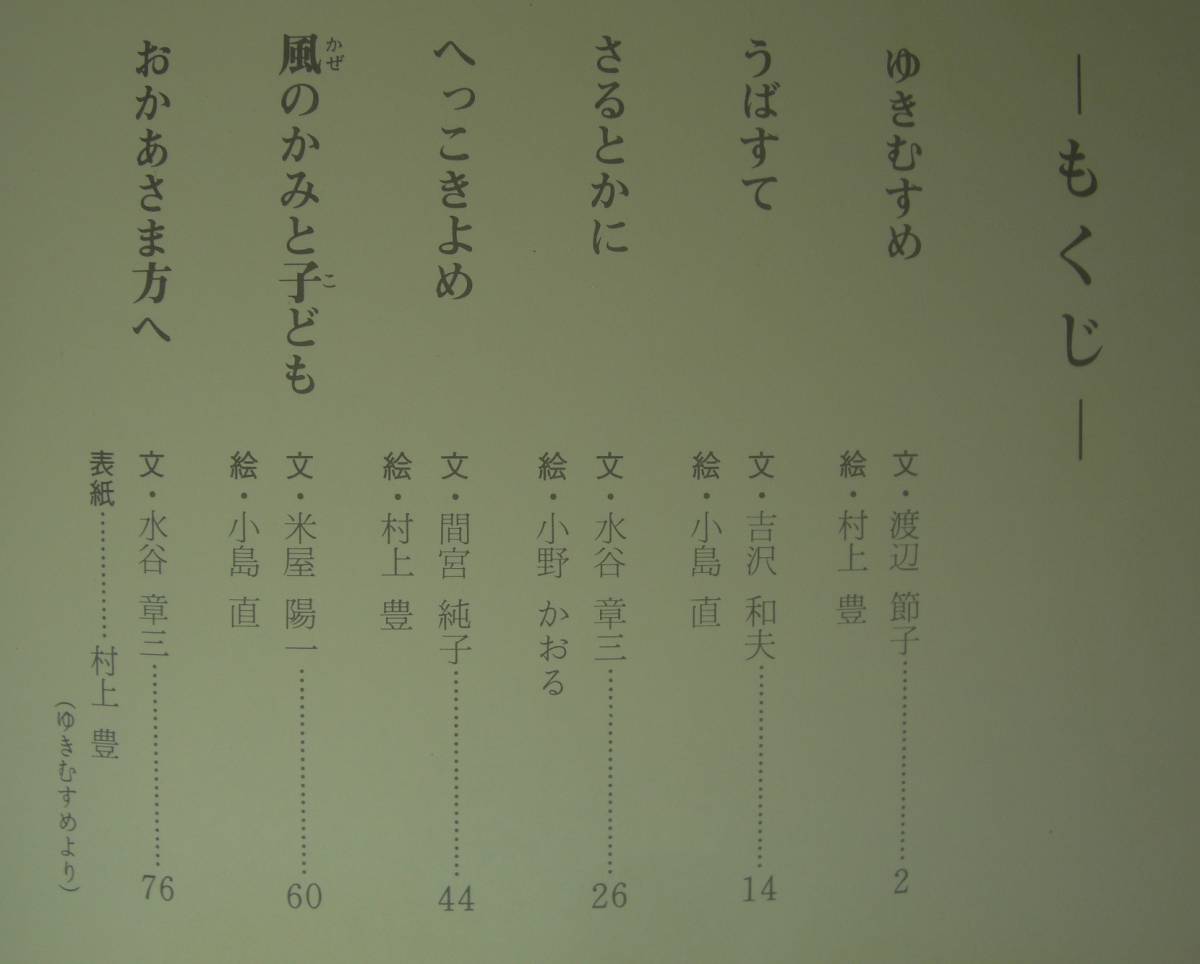 ―もくじ―
ゆきむすめ
文・渡辺 節子……………………2
絵・村上 豊
うばすて
文・吉沢 和夫……………………14
絵・小島 直
さるとかに
文・水谷 章三……………………26
絵・小野 かおる
へっこきよめ
文・間宮 純子……………………44
絵・村上 豊
風のかみと子ども
かぜ
こ
文・米屋 陽一……………………60
絵・小島 直
おかあさま方へ
文・水谷 章三……………………76
表紙……………村上 豊
(ゆきむすめより)